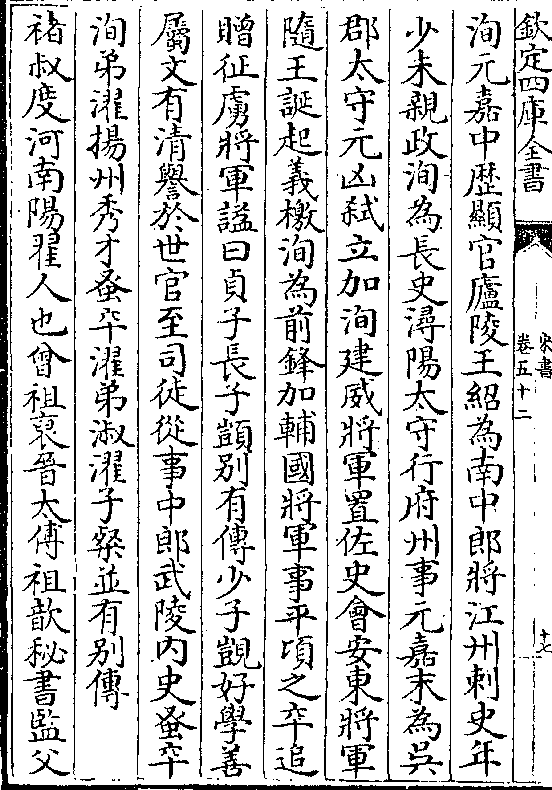 欽定四庫全書
宋書
卷五十二
十七
洵元嘉中歴顯官廬陵王紹為南中郎將江州刺史年
少未親政洵為長史潯陽太守行府州事元嘉末為吳
郡太守元凶弑立加洵建威將軍置佐史會安東將軍
隨王誕起義檄洵為前鋒加輔國將軍事平頃之卒追
贈征虜將軍諡曰貞子長子顗别有傳少子覬好學善
屬文有清譽於世官至司徒從事中郎武陵内史蚤卒
洵弟濯揚州秀才蚤卒濯弟淑濯子粲並有别傳
褚叔度河南陽翟人也曾祖裒晉太傅祖歆秘書監父